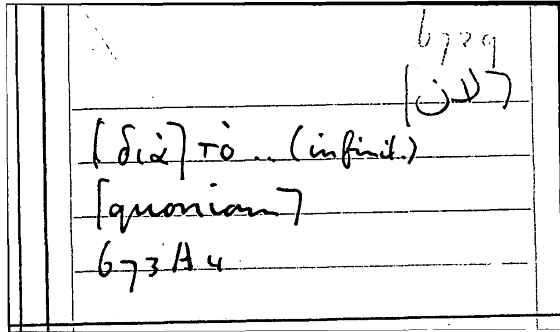 6729
[لان]
[διὰ] τὸ... (infinit.)
[quoniam]
673A4